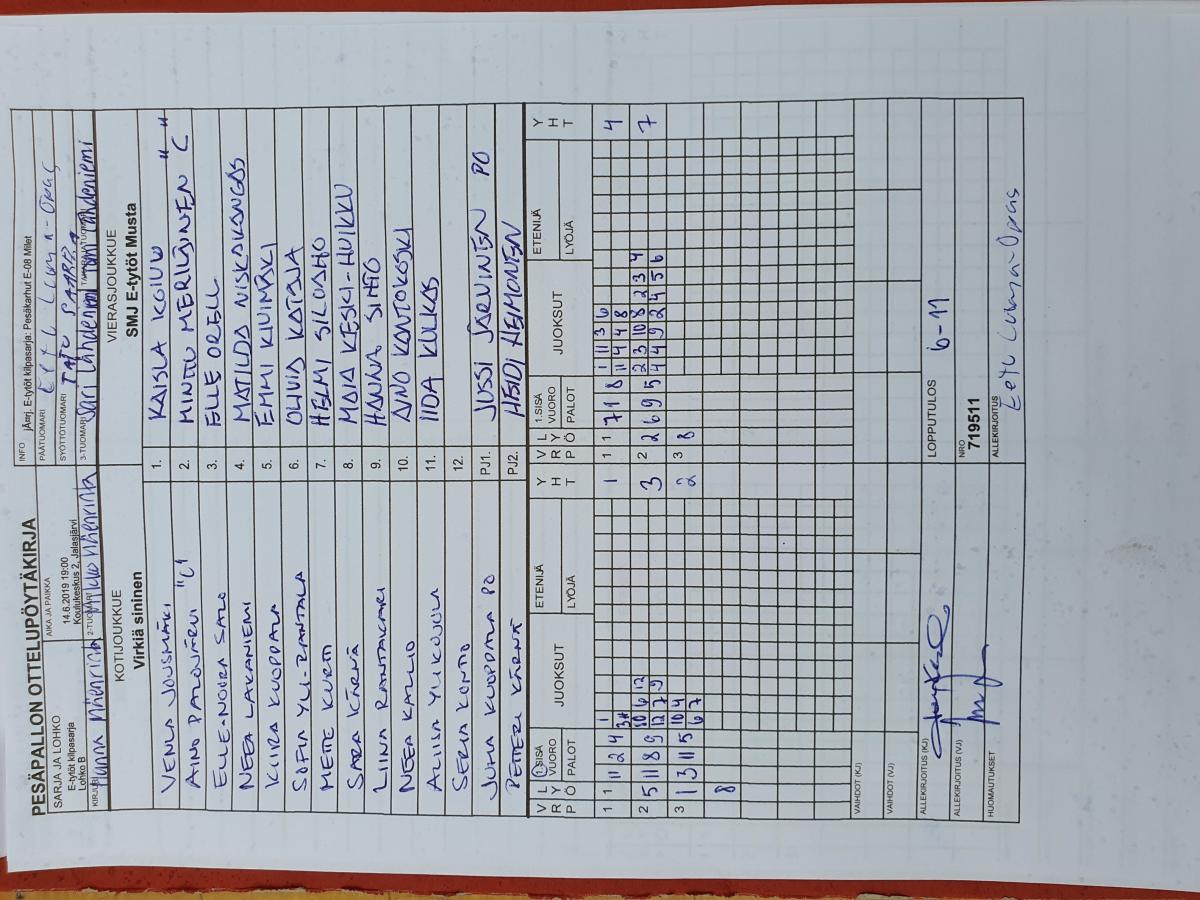 PESÄPALLON OTTELUPÖYTÄKIRJA
SARJA JA LOHKO
E-tytöt kilpasarja
Lohko B
AIKA JA PAIKKA
14.6.2019 19:00
Koulukeskus 2, Jalasjärvi
INFO jÄmrj. E-tytöt kilpasarja: Pesäkarhut E-08 Millet
PÄÄTUOMARI
SYÖTTÖTUOMARI
KIRJURI
2-TUOMARI
3-TUOMARI Sari Lähdeniemi
KOTIJOUKKUE
Virkiä sininen
VIERASJOUKKUE
SMJ E-tytöt Musta
VENLA JOUSMÄKI 1. KAISLA KOIVU " "
AINO PALOJÄRVI "C" 2. MINTTU MERILÄINEN C
ELLE-NOORA SALO 3. ELLE ORELL
NEEA LAKANIEMI 4. MATILDA NISKAKANGAS
KIIRA KUOPPALA 5. EMMI KIVIMÄKI
SOFIA YLI-RANTALA 6. OLIVIA KATAJA
METTE KURTTI 7. HELMI SILOAHO
SARA KÄRNÄ 8. MAIJA KESKI-HUIKKU
LIINA RANTAKARI 9. HANNA SINTO
NEEA KALLIO 10. AINO KANTOKOSKI
ALIISA YLIKOJOLA 11. IIDA KULKAS
SERJA KONTIO 12.
JUHA KUOPPALA PO PJ1. JUSSI JÄRVINEN PO
PETTERI KÄRNÄ PJ2. HEIDI HEIMONEN
V P L Y Ö R 1.SISÄ VUORO PALOT JUOKSUT ETENIJÄ LYÖJÄ Y H T
V P L Y Ö R 1.SISÄ VUORO PALOT JUOKSUT ETENIJÄ LYÖJÄ Y H T
1 1 11 2 4 1 1
1 1 7 1 8 1 11 3 6 4
11 4 4 8
2 5 11 8 9 10 6 12 3
12 7 9
2 2 6 9 5 2 3 10 8 2 3 4 7
4 4 9 2 4 5 6
3 1 3 11 5 10 4 2
6 7
3 8
8
VAIHDOT (KJ)
VAIHDOT (VJ)
ALLEKIRJOITUS (KJ)
ALLEKIRJOITUS (VJ)
HUOMAUTUKSET
LOPPUTULOS 6-11
NRO
719511
ALLEKIRJOITUS